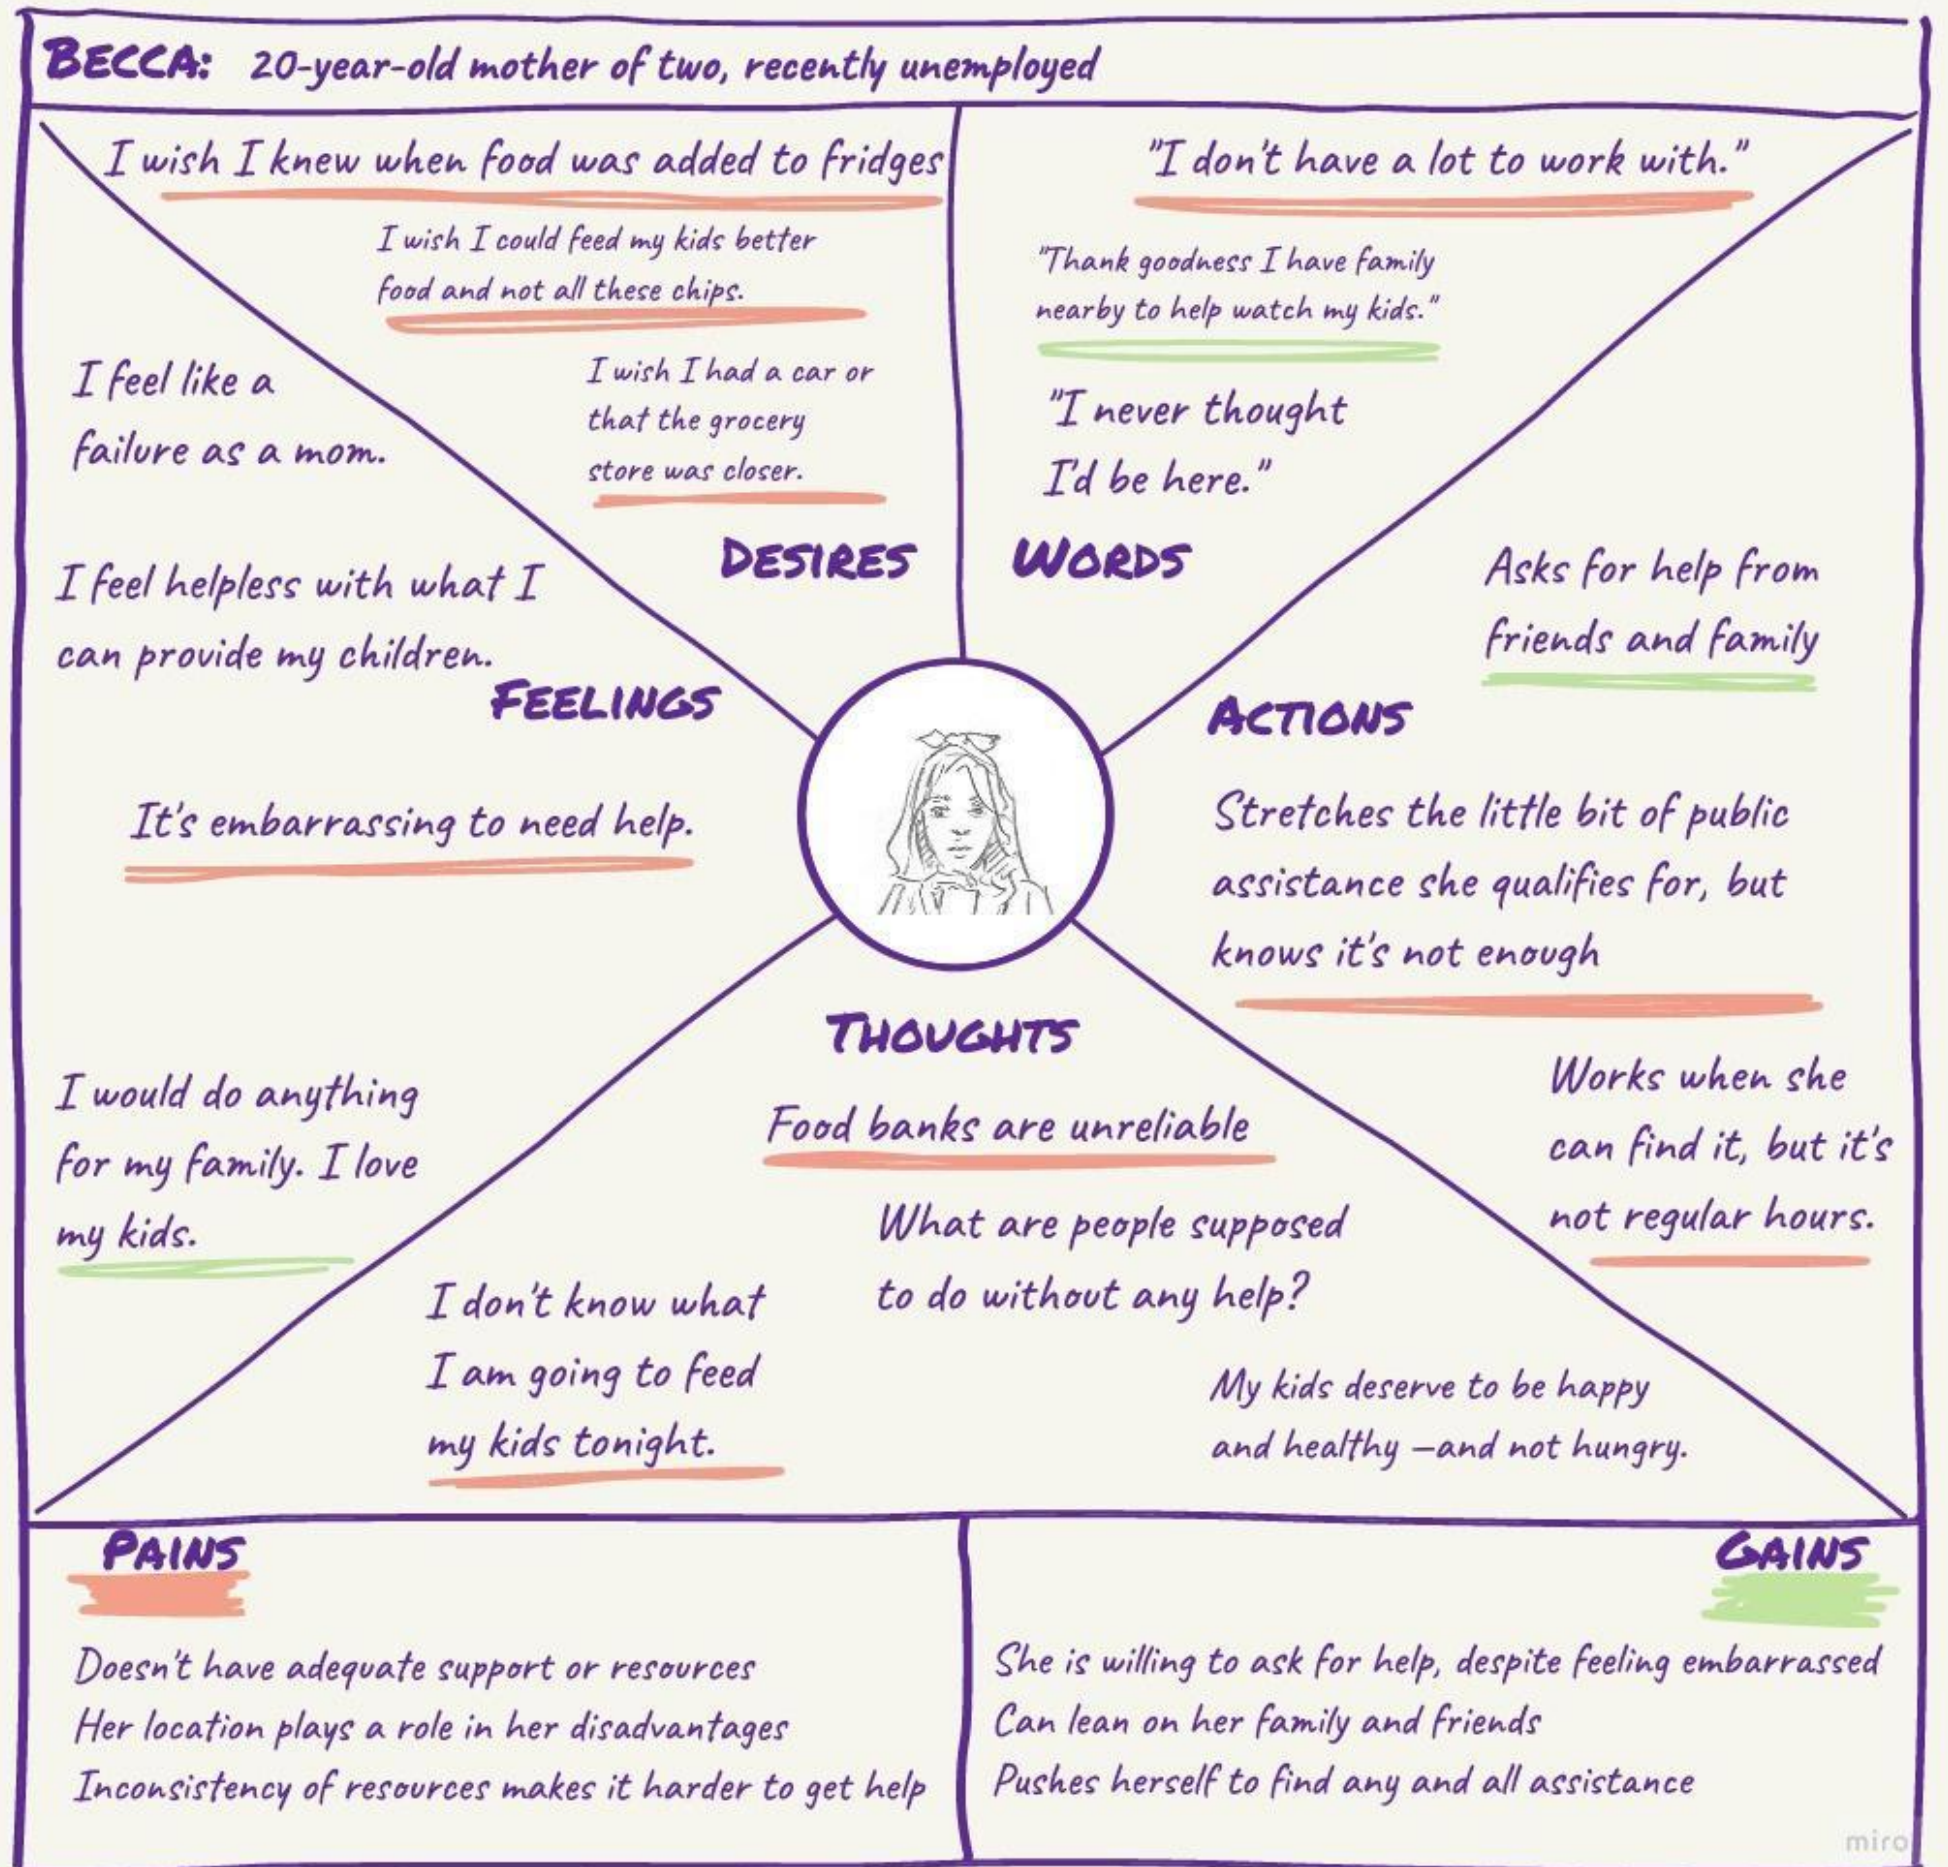 BECCA: 20-year-old mother of two, recently unemployed
I wish I knew when food was added to fridges
I wish I could feed my kids better
food and not all these chips.
I wish I had a car or
that the grocery
store was closer.
DESIRES
"I don't have a lot to work with."
"Thank goodness I have family
nearby to help watch my kids."
"I never thought
I'd be here."
WORDS
I feel like a
failure as a mom.
I feel helpless with what I
can provide my children.
FEELINGS
It's embarrassing to need help.
I would do anything
for my family. I love
my kids.
Asks for help from
friends and family
ACTIONS
Stretches the little bit of public
assistance she qualifies for, but
knows it's not enough
Works when she
can find it, but it's
not regular hours.
THOUGHTS
Food banks are unreliable
What are people supposed
to do without any help?
I don't know what
I am going to feed
my kids tonight.
My kids deserve to be happy
and healthy —and not hungry.
PAINS
Doesn't have adequate support or resources
Her location plays a role in her disadvantages
Inconsistency of resources makes it harder to get help
GAINS
She is willing to ask for help, despite feeling embarrassed
Can lean on her family and friends
Pushes herself to find any and all assistance
miro